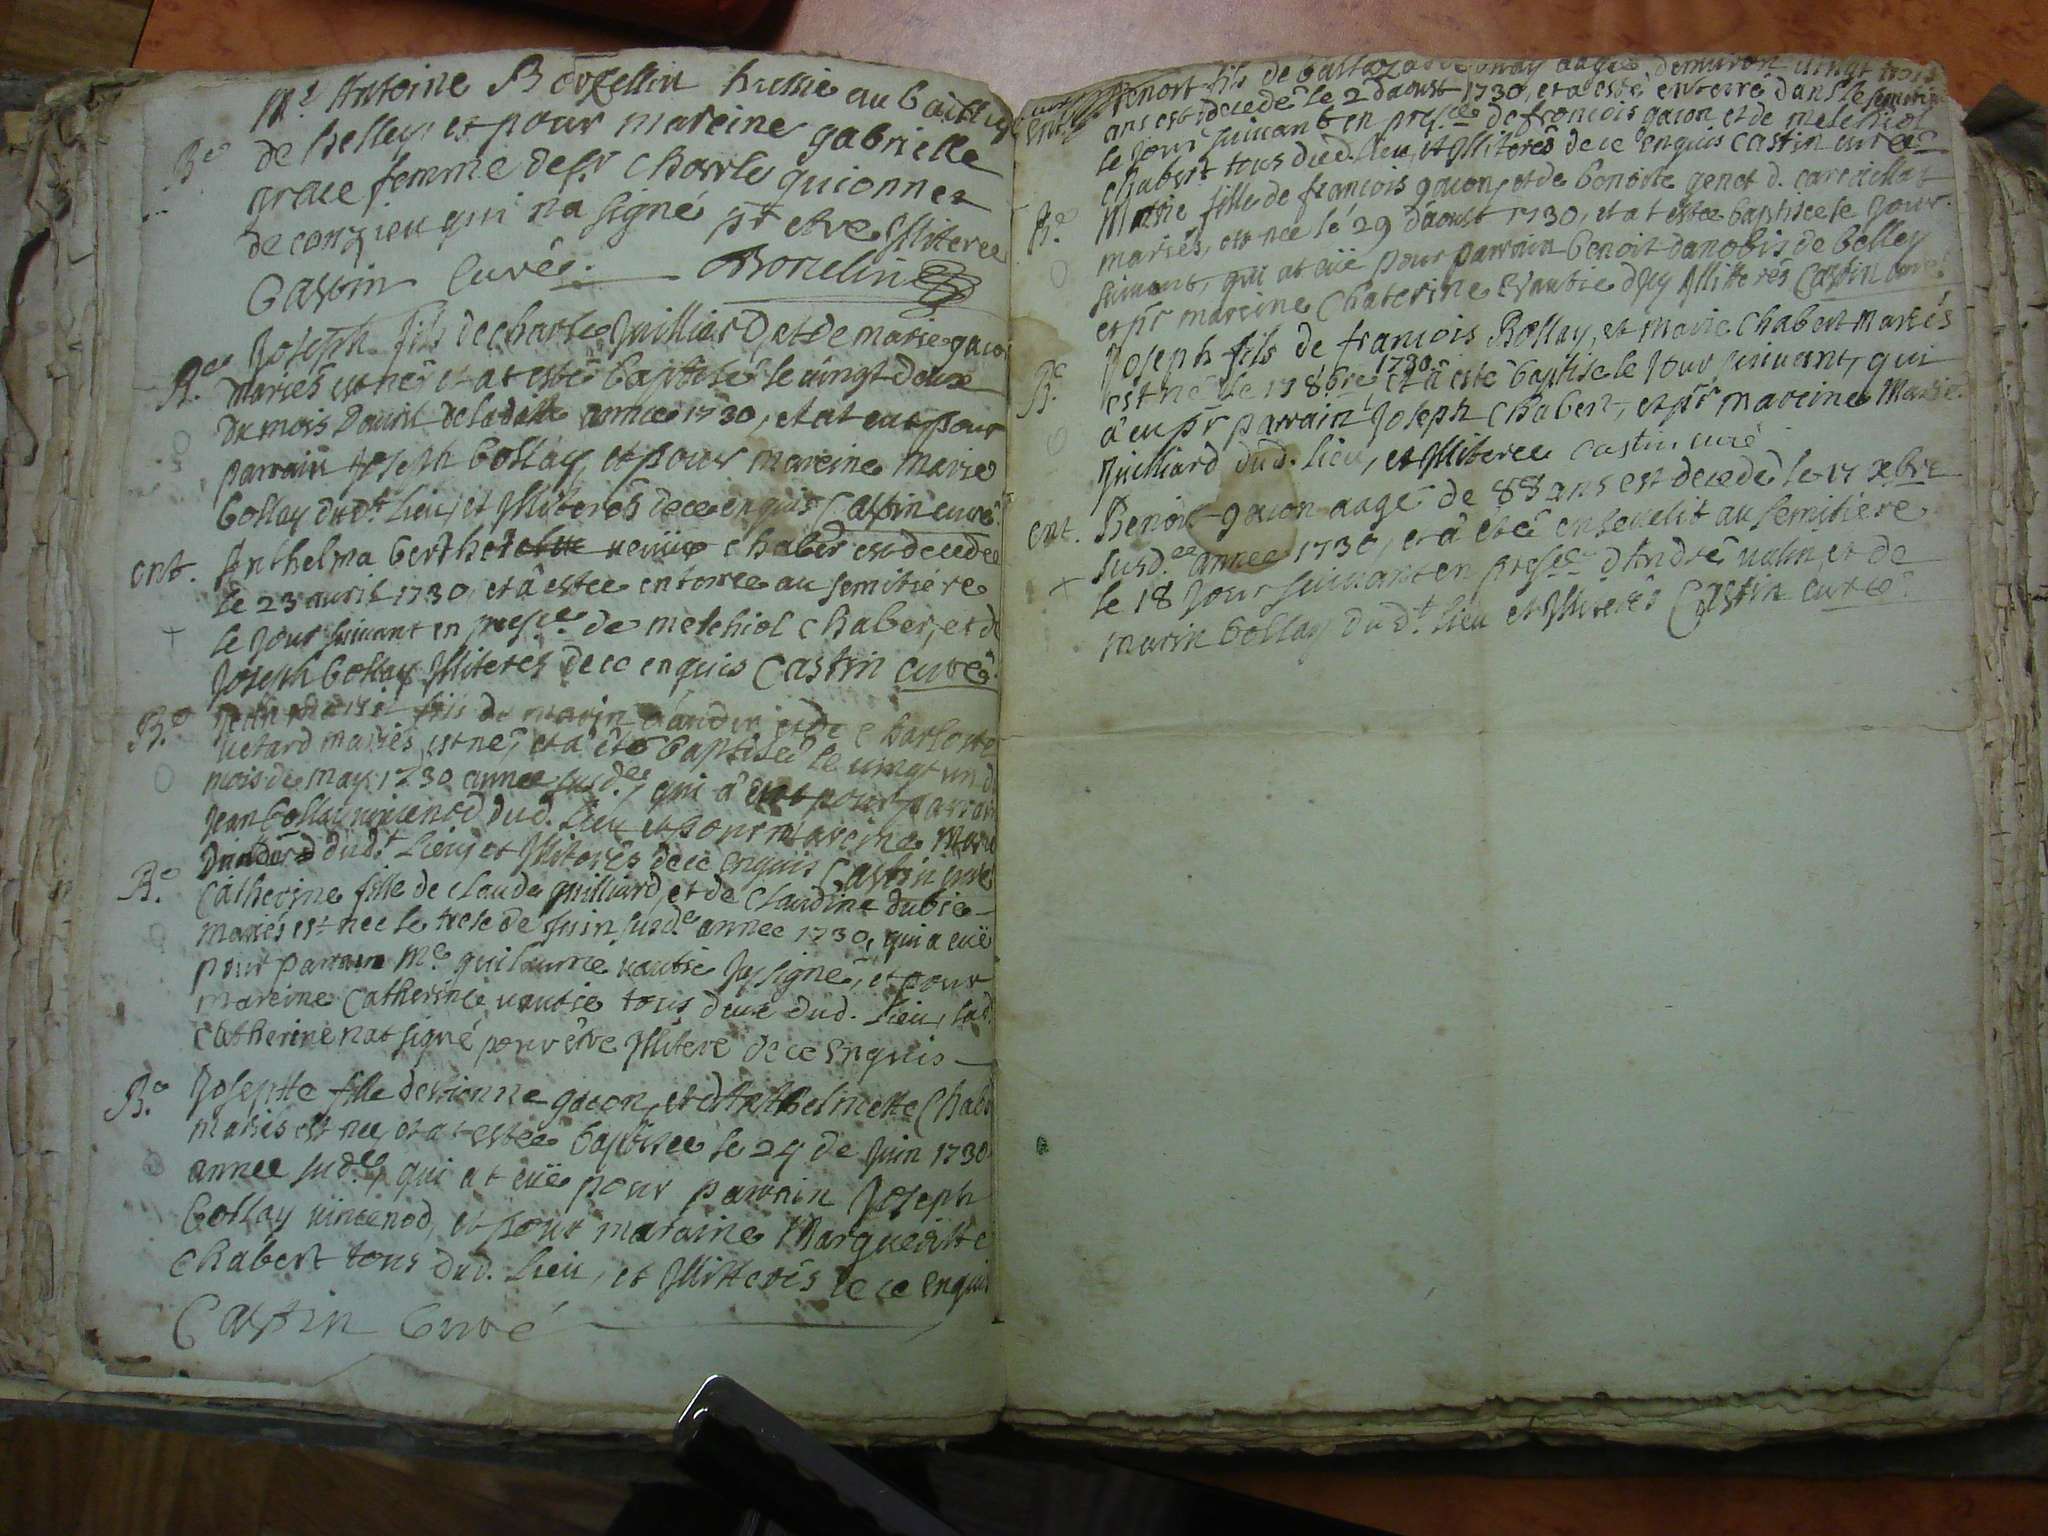 Mr Antoine Borzellin hussie au bailliage
Be de belley, et pour mareine gabrielle
grace femme de sr charle guionnet
de conzieu qui n'a signé pr etre Illiteree
Castin Curé. Borcelin
Be Joseph fils de charle Juilliard, et de marie gacon
mariés est né, et at esté baptisé le vingt deux
du mois d'avril de la ditte année 1730, et at eut pour
parrain Joseph bollay, et pour mareine marie
bollay dudt. lieu, et Illiterés de ce enquis Castin curé
ent. Anthelma berthet veuve chaber est decedee
le 23 avril 1730, et a estee enterree au semitiére
le jour suivant en presce de melchiol chaber, et de
Joseph bollay Illiterés de ce enquis Castin curé
Be fils de marin et de charlotte
mariés, est né, et a été baptisé le vingt un du
mois de may 1730 année susdee, qui a eut pour parrain
Jean bollay vincenod dud. lieu et pour mareine marie
dudt. lieu, et Illiterés de ce enquis Castin curé
Be. Catherine fille de claude Juilliard, et de claudine dubie
mariés est nee le trese de Juin susde annee 1730, qui a euë
pour parrain Me guilaume vautie sy signé, et pour
mareine Catherine vautie tous deux dud. lieu, lad.
catherine nat signé pour être Illiteré de ce enquis
Be. Josephte fille destienne gacon, et d'Anthelmette Chaber
mariés est nee, et at estee baptisee le 24 de Juin 1730
annee sudee, qui at euë pour parrain Joseph
bollay vincenod, et pour maraine Margueritte
chabert tous dud. lieu, et Illitterés de ce enquis
Castin Curé
ent benoit fils de baltazard bollay aagé d'environ vingt trois
ans est decedé le 2 d'aoust 1730, et a esté enterré dans le semitiere
le jour suivant en presce de francois gacon et de melchiol
chabert tous dud. lieu, et Illiterés de ce enquis Castin curé
Be Marie fille de francois gacon, et de benoite genet d.
mariés, est nee le 29 d'aoust 1730, et at estee baptisee le jour
suivant, qui at euë pour parrain benoit danobis de belley
et pr mareine Chaterine vautie d'icy Illitterés Castin curé
Be. Joseph fils de francois Bollay, et marie Chabert mariés
est né le 17 8bre 1730 et a esté baptisé le jour suivant, qui
a eu pr parrain Joseph chabert, et pr mareine Marie
Juilliard dud. lieu, et Illiteree Castin curé
ent. Benoit gacon aagé de 88 ans est decedé le 17 xbre
susdee annee 1730, et a été ensevelit au semitiére
le 18 jour suivant en presce d'André valin, et de
marin bollay dudt. lieu et Illiterés Castin curé